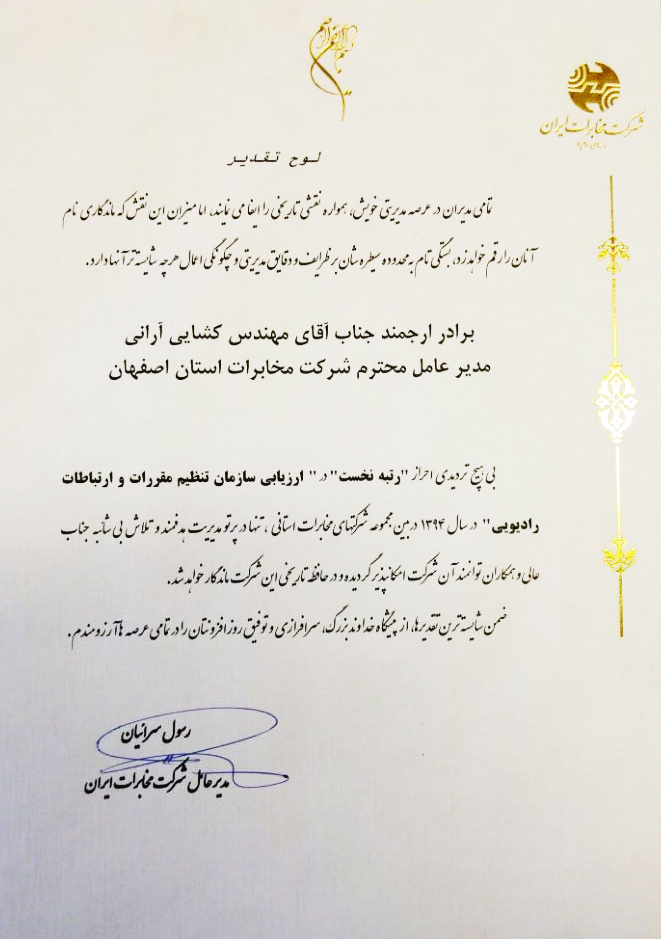 بسم الله الرحمن الرحیم
شرکت مخابرات ایران
لوح تقدیر
تمامی مدیران در عرصه مدیریتی خویش، همواره نقشی تاریخی را ایفا می نمایند، اما میزان این نقش که ماندگاری نام
آنان را رقم خواهد زد، بستگی تام به محدوده سیطره شان بر ظرایف و دقایق مدیریتی و چگونگی اعمال هرچه شایسته تر آنها دارد.
برادر ارجمند جناب آقای مهندس کشایی آرانی
مدیر عامل محترم شرکت مخابرات استان اصفهان
بی هیچ تردیدی احراز "رتبه نخست" در " ارزیابی سازمان تنظیم مقررات و ارتباطات
رادیویی" در سال ۱۳۹۴ در بین مجموعه شرکتهای مخابرات استانی ، تنها در پرتو مدیریت هدفمند و تلاش بی شائبه جناب
عالی و همکاران توانمند آن شرکت امکانپذیر گردیده و در حافظه تاریخی این شرکت ماندگار خواهد شد.
ضمن شایسته ترین تقدیرها، از پیشگاه خداوند بزرگ، سرافرازی و توفیق روز افزونتان را در تمامی عرصه ها آرزومندم.
رسول سرائیان
مدیر عامل شرکت مخابرات ایران